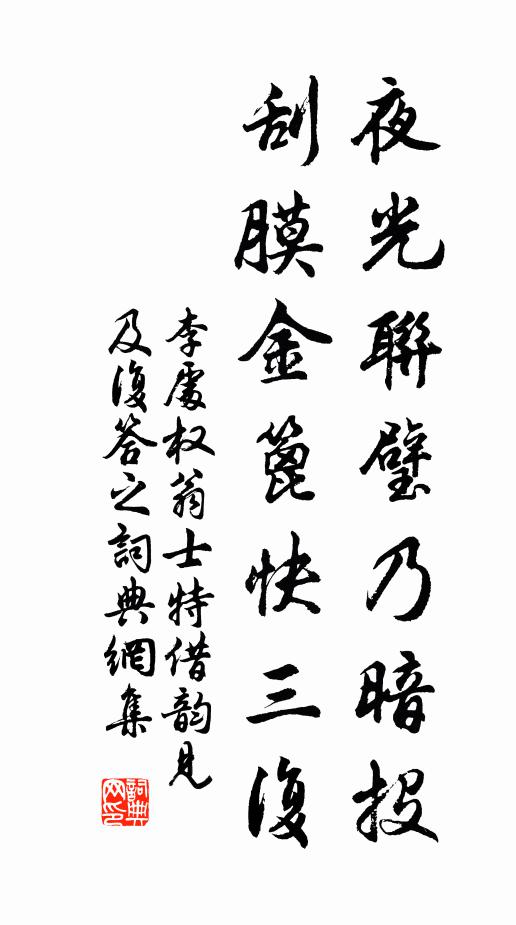 夜光聯璧乃暗投
刮膜金篦快三復
李處权翁士特借韵見
及復答之詞典網集
詞典
网印